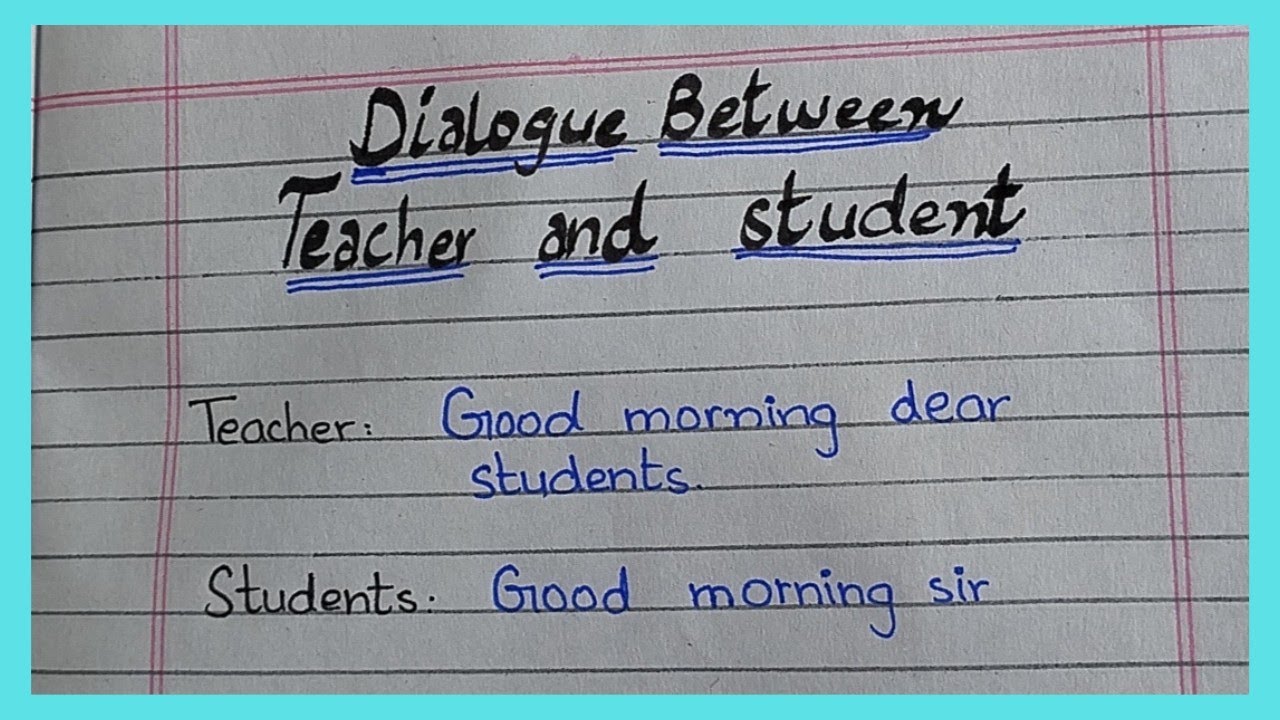 Dialogue Between
Teacher and student
Teacher: Good morning dear
students.
Students. Good morning sir